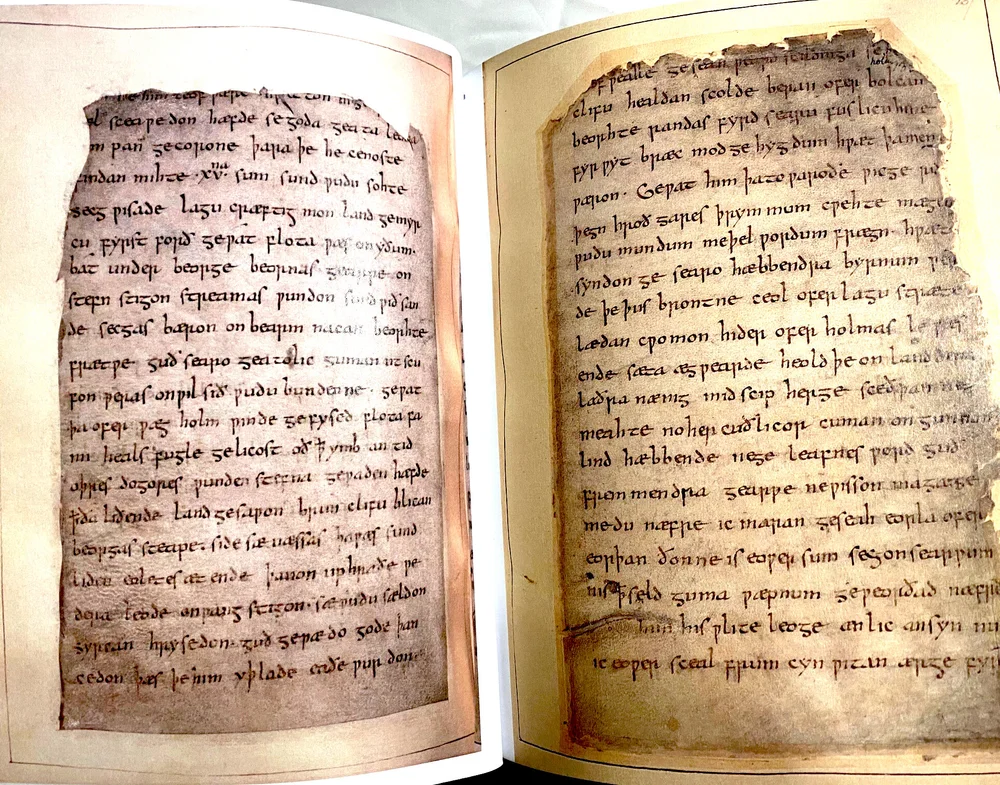 him leof ƿære hƿetton hig
sceaƿedon hæfde se goda geata leo
pan gecorone þara þe he cenoste
findan mihte · xvna sum sund ƿudu sohte
secg ƿisade lagu cræftig mon land gemyr
cu fyrst forð geƿat flota ƿæs on yðum ·
bat under beorge beornas gearƿe on
stefn stigon streamas ƿundon sund ƿið san
de secgas bæron on bearm nacan beorhte
frætƿe guð searo geatolic guman ut scu
fon ƿeras on ƿil sið ƿudu bundenne · geƿat
þa ofer ƿæg holm ƿinde gefysed flota fa
mi heals fugle gelicost oð ꝥ ymb an tid
oþres dogores ƿunden stefna geƿaden hæfde
ꝥ ða liðende land gesaƿon brim clifu blican
beorgas steape · side sæ næssas þa ƿæs sund
liden eoletes æt ende þanon up hraðe ƿe
dera leode on ƿang stigon · sæ ƿudu sældon
syrcan hrysedon · guð geƿædo gode þan
cedon þæs þe him yþlade eaðe ƿurdon ·
of ƿealle geseah ƿeard scildinga se holm
clifu healdan scolde beran ofer bolcan
beorhte randas fyrd searu fuslicu hine
fyrƿyt bræc mod gehygdum hƿæt þa men
ƿæron · Geƿat him þa to ƿaroðe ƿicge ri
þegn hroð gares þrymmum cƿehte mægen
ƿudu mundum meþel ƿordum frægn · hƿæt
syndon ge searo hæbbendra byrnum ƿe
de þe þus brontne ceol ofer lagu stræte
lædan cƿomon hider ofer holmas le ƿæs
ende sæta æg ƿearde heold þe on land
laðra nænig mid scip herge sceðþan ne
meahte no her cuðlicor cuman ongunnon
lind hæbbende ne ge leafnes ƿord guð
fremmendra gearƿe ne ƿisson maga ge
medu næfre ic maran geseah eorla ofer
eorþan ðonne is eoƿer sum secg on searƿum
nis ꝥ seld guma ƿæpnum geƿeorðad næfre
him his ƿlite leoge ænlic ansyn nu
ic eoƿer sceal frum cyn ƿitan ær ge fyr